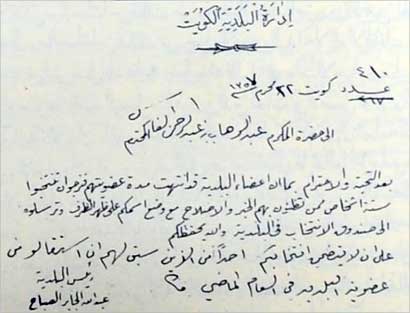 إدارة البلدية الكويت
٤١٠
عدد كويت ٢٢ محرم ١٣٥٧
الى حضرة المكرم عبد الوهاب بن عبد الرحمن المحترم
بعد التحية والاحترام بما ان اعضاء البلدية قد انتهت مدة عضويتهم فنرجو ان تنتخبوا
ستة اشخاص ممن تظنون بهم الخير والاصلاح مع وضع اسمكم على ظهر الظرف وترسلوه
الى صندوق الانتخاب في البلدية والله يحفظكم
على ان لا يتضمن انتخابكم احداً من الذين سبق لهم ان استقالوا من
عضوية البلدية في العام الماضي
رئيس البلدية
عبدالله الجابر الصباح